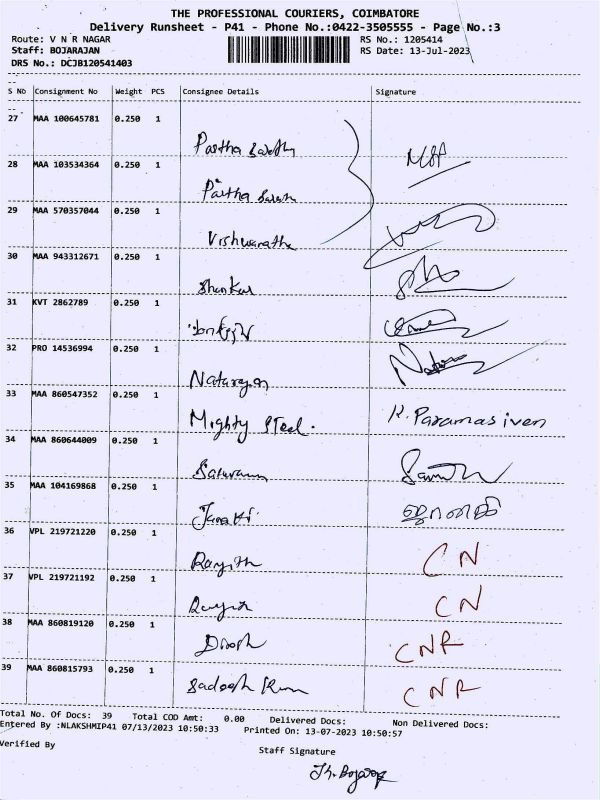 THE PROFESSIONAL COURIERS, COIMBATORE
Delivery Runsheet - P41 - Phone No.:0422-3505555 - Page No.:3
Route: V N R NAGAR RS No.: 1205414
Staff: BOJARAJAN RS Date: 13-Jul-2023
DRS No.: DCJB120541403
S No Consignment No Weight PCS Consignee Details Signature
27 MAA 100645781 0.250 1
Partha Sarathy
28 MAA 103534364 0.250 1
Partha Sarathy
29 MAA 570357044 0.250 1
Vishwanatha
30 MAA 943312671 0.250 1
Shankar
31 KVT 2862789 0.250 1
32 PRO 14536994 0.250 1
Natarajan
33 MAA 860547352 0.250 1
Mighty Steel. K. Paramasiven
34 MAA 860644009 0.250 1
Saravanan
35 MAA 104169868 0.250 1
Janaki ஜானகி
36 VPL 219721220 0.250 1
Ranjith CN
37 VPL 219721192 0.250 1
Ranjith CN
38 MAA 860819120 0.250 1
Dinesh CNR
39 MAA 860815793 0.250 1
CNR
Total No. Of Docs: 39 Total COD Amt: 0.00 Delivered Docs: Non Delivered Docs:
Entered By :NLAKSHMIP41 07/13/2023 10:50:33 Printed On: 13-07-2023 10:50:57
Verified By
Staff Signature